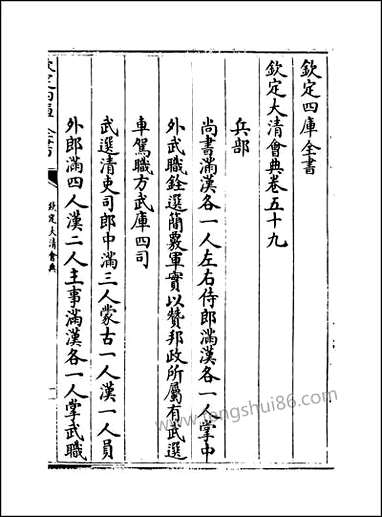 欽定四庫全書
欽定大清會典卷五十九
兵部
尚書滿漢各一人左右侍郎滿漢各一人掌中
外武職銓選簡覈軍實以贊邦政所屬有武選
車駕職方武庫四司
武選清吏司郎中滿三人蒙古一人漢一人員
外郎滿四人漢二人主事滿漢各一人掌武職
欽定四庫全書
欽定大清會典
一
www.fengshui86.com